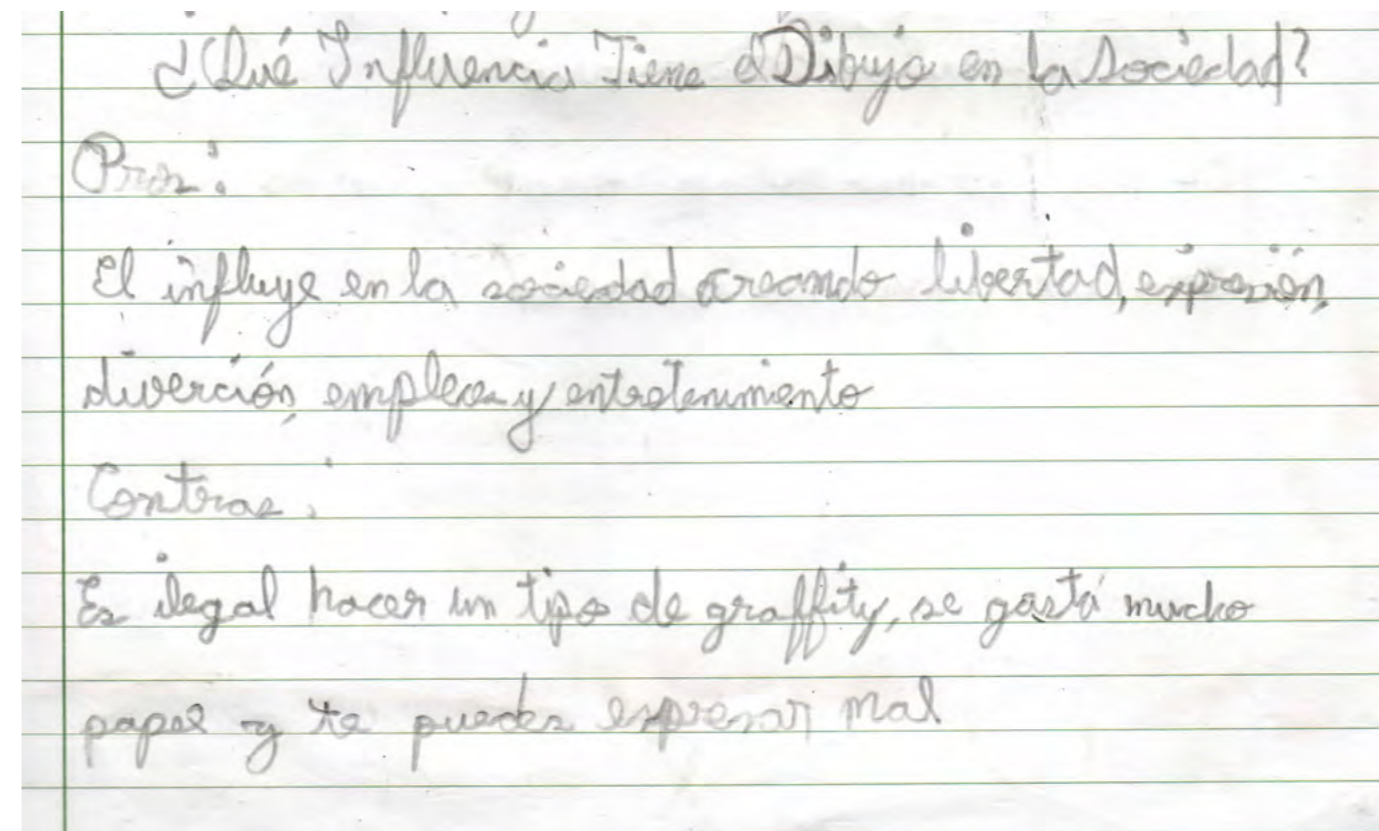 ¿Qué Influencia Tiene el Dibujo en la Sociedad?
Pros:
El influye en la sociedad creando libertad, expresión,
diverción, empleos y entretenimiento
Contras:
Es ilegal hacer un tipo de graffity, se gastá mucho
papel y te puedes expresar mal